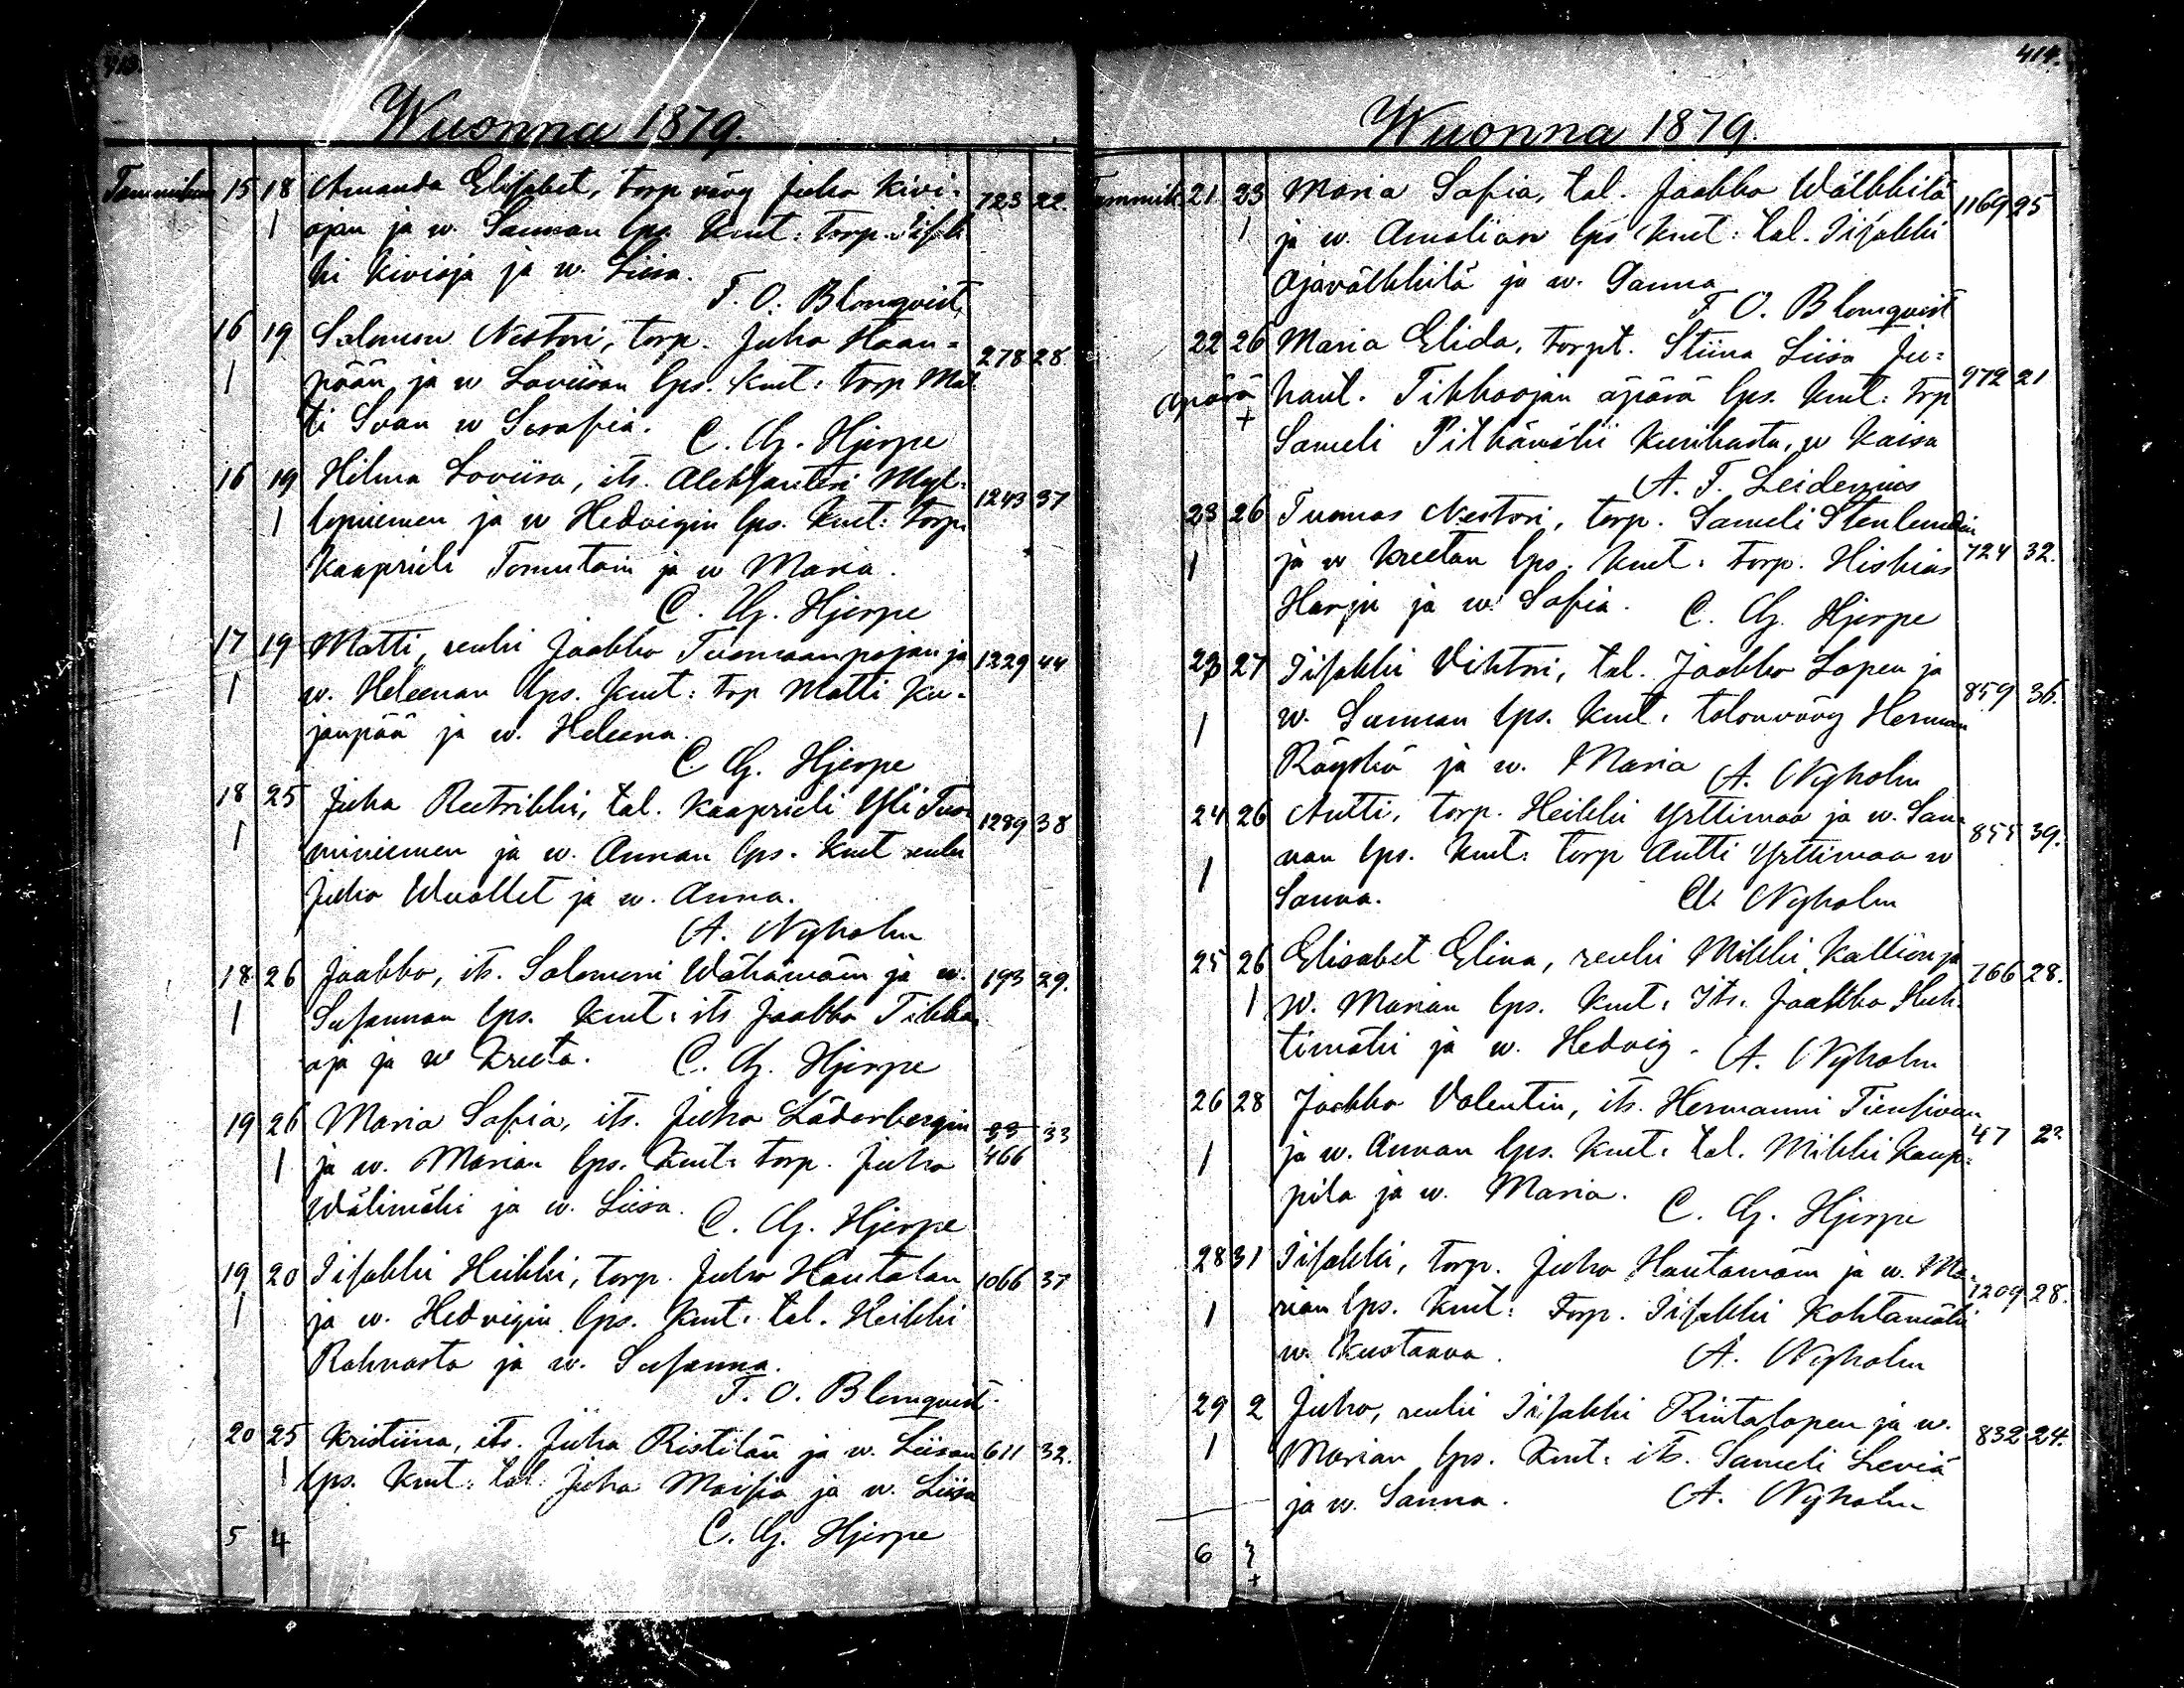 413.
Wuonna 1879.
Tammikuu 15 18 Amanda Elisabet, torp. vävy Juho Kivi- 723 22.
1 ojan ja w. Sannan lps. Kmt: torp. Iisak
ki Kivioja ja w. Liisa.
F. O. Blomqvist
16 19 Salomon Nestori, torp. Juho Haan- 278 28.
1 pään ja w Loviisan lps. Kmt: torp Mat
ti Svan w Serafia.
C. G. Hjerpe
16 19 Hilma Loviisa, its. Aleksanteri Myl- 1243 37
1 lyniemen ja w Hedvigin lps. Kmt: torp.
Kaaprieli ja w Maria.
C. G. Hjerpe
17 19 Matti, renki Jaakko Tuomaanpojan ja 1229 44
1 w. Heleenan lps. Kmt: trp Matti Ku-
janpää ja w. Heleena.
C. G. Hjerpe
18 25 Juha Reetrikki, tal. Kaaprieli Yli Tuo- 1289 38
1 miniemen ja w. Annan lps. Kmt renki
Juho Wuollet ja w. Anna.
A. Nyholm
18 26 Jaakko, its. Salomoni Wähämäen ja w. 193 29.
1 Susannan lps. Kmt: its Jaakko Tikka
oja ja w Kreeta.
C. G. Hjerpe
19 26 Maria Sofia, its. Juho Söderbergin 33 33
1 ja w. Marian lps. Kmt: torp. Juho 466
Wälimäki ja w. Liisa.
C. G. Hjerpe
19 20 Iisakki Heikki, torp. Juho Hautalan 1066 37
1 ja w. Hedvigin lps. Kmt: tal. Heikki
Rahnasto ja w. Susanna.
F. O. Blomqvist.
20 25 Kristiina, its. Juha Ristilän ja w. Liisan 611 32.
1 lps. Kmt: tal: Juha ja w. Liisa
C. G. Hjerpe
5 4
414.
Wuonna 1879.
Tammik. 21 23 Maria Sofia, tal. Jaakko Wälkkilä 1169 25
1 ja w. Amalian lps Kmt: tal. Iisakki
Ojavälkkilä ja w. Sanna
F O. Blomqvist
22 26 Maria Elida, torpt. Stiina Liisa Ju- 972 21
äpärä + hant. Tikkaojan äpärä lps. Kmt: trp
Sameli Pitkämäki Kurikasta, w Kaisa
A. F. Leidenius
23 26 Tuomas Nestori, torp. Sameli Stenlundin
1 ja w Kreetan lps. Kmt: torp. Hiskias 724 32.
Harju ja w. Sofia.
C. G. Hjerpe
23 27 Iisakki Vihtori, tal. Jaakko Lopen ja 859 36.
1 w. Sannan lps. Kmt: talonvävy Herman
Röyskö ja w. Maria
A. Nyholm
24 26 Antti, torp. Heikki Yrttimaa ja w. San- 855 39.
1 nan lps. Kmt: torp Antti Yrttimaa w
Sanna.
A. Nyholm
25 26 Elisabet Elina, renki Mikki Kallion ja 766 28.
1 w. Marian lps. Kmt: Its. Jaakko Huh-
timäki ja w. Hedvig.
A. Nyholm
26 28 Jaakko Valentin, its. Hermanni Tiensivun
1 ja w. Annan lps. Kmt: tal. Mikki Kaup- 47 2?
pila ja w. Maria.
C. G. Hjerpe
28 31 Iisakki, torp. Juho Hautamäen ja w. Ma-
1 rian lps. Kmt: Torp. Iisakki Kohtamäki 1209 28.
w. Kustaava.
A. Nyholm
29 2 Juho, renki Iisakki Rintalopen ja w. 832 24.
1 Marian lps. Kmt: its. Sameli Leviä
ja w. Sanna.
A. Nyholm
6 3
+